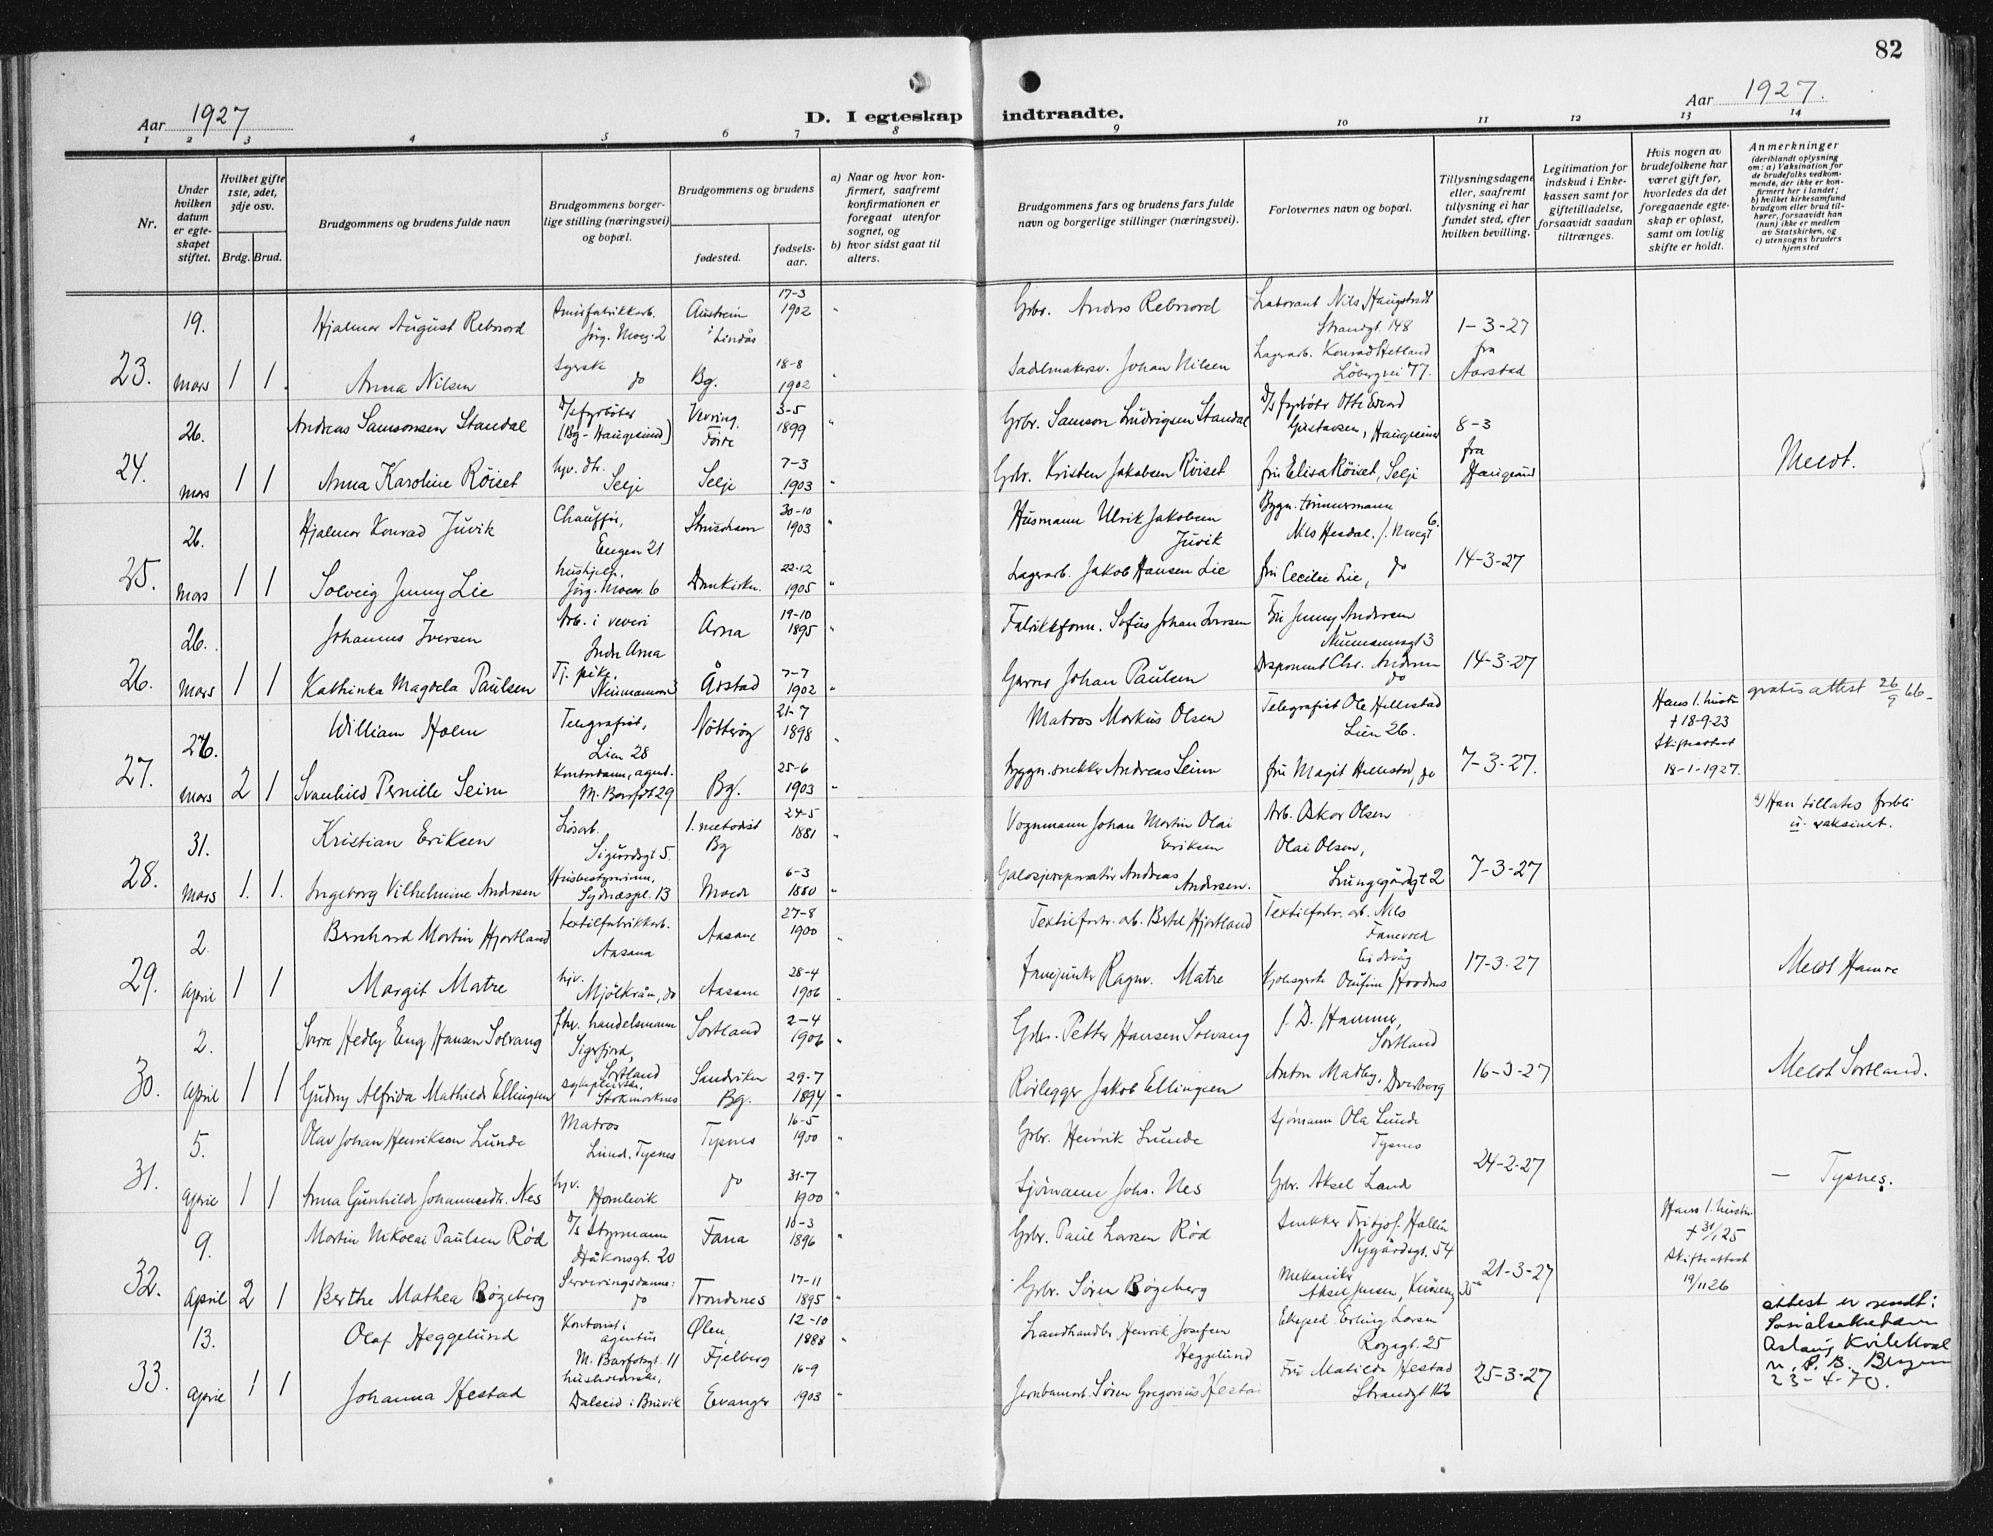 82
Aar 1927
D. I egteskap indtraadte.
Aar 1927.
1 2 3 4 5 6 7 8 9 10 11 12 13 14
Nr.
Under hvilken datum er egteskapet stiftet.
Hvilket gifte 1ste, 2det, 3dje osv.
Brdg. Brud.
Brudgommens og brudens fulde navn
Brudgommens borgerlige stilling (næringsvei) og bopæl.
Brudgommens og brudens
fødested.
fødselsaar.
a) Naar og hvor konfirmert, saafremt konfirmationen er foregaat utenfor sognet, og
b) hvor sidst gaat til alters.
Brudgommens fars og brudens fars fulde navn og borgerlige stillinger (næringsvei).
Forlovernes navn og bopæl.
Tillysningsdagene eller, saafremt tillysning ei har fundet sted, efter hvilken bevilling.
Legitimation for indskud i Enkekassen samt for giftetilladelse, forsaavidt saadan tiltrænges.
Hvis nogen av brudefolkene har været gift før, hvorledes da det foregaaende egteskap er opløst, samt om lovlig skifte er holdt.
Anmerkninger
(deriblandt oplysning om: a) Vaksination for de brudefolks vedkommende, der ikke er konfirmert her i landet; b) hvilket kirkesamfund brudgom eller brud tilhører, forsaavidt han (hun) ikke er medlem av Statskirken, og c) utensogns bruders hjemsted
23. 19. Mars 1 1
Hjalmar August Rebnord
Jørg. Moeg. 2
Austrein i Lindås
17-3 1902
Gbr. Anders Rebnord
Laborant Nils Haugstvedt
Strandgt. 148
1-3-27
fra
Aarstad
Anna Nilsen
Syerske
do
Bg.
18-8 1902
Sadelmakersv. Johan Nilsen
Lagerarb. Konrad Hetland
Løbergsvei 77.
24. 26. Mars 1 1
Andreas Samsonsen Standal
D/s fyrbøter
(Bg - Haugesund)
Vevring, Førde
3-5 1899
Gbr. Samson Ludvigsen Standal
D/s fyrbøter Otto Edvard
Gustavsen, Haugesund
8-3
fra
Haugesund
Meldt.
Anna Karoline Røiset
hjv. dtr.
Selje
Selje
7-3 1903
Gbr. Kristen Jakobsen Røiset
fru Elisa Røiset, Selje
25. 26. Mars 1 1
Hjalmar Konrad Juvik
Chauffør,
Engen 21
30-10 1903
Husmann Ulrik Jakobsen
Juvik
Bygn. tømmermann
Nils Hesdal, J. Moegt 6.
14-3-27
Solveig Jenny Lie
hushjelp,
Jørg. Moeg. 6
Domkirken
22-12 1905
Lagerarb. Jakob Hansen Lie
fru Cecilie Lie, do
26. 26. Mars 1 1
Johannes Iversen
Arb. i veveri
Indre Arna
Arna
19-10 1895
Fabrikkform. Sofus Johan Iversen
Fru Jenny Andersen
Neumannsgt 3
14-3-27
Kathinka Magdela Paulsen
Tj. pike,
Neumannsgt 3
Årstad
7-7 1902
Garver Johan Paulsen
Disponent Chr. Andersen
do
gratis attest 26/9 66
27. 26. Mars 2 1
William Holm
Telegrafist,
Lien 28
Nøtterøy
21-7 1898
Matros Markus Olsen
Telegrafist Ole Hellestad
Lien 26.
7-3-27.
Hans 1. hustru
† 18-9-23
Skifteattest
18-1-1927.
Svanhild Pernille Seim
Kontordame, agent.
M. Barfodt 29
Bg.
25-6 1903
Byggn.snekker Andreas Seim
fru Magit Hellestad, do
28. 31. Mars 1. 1.
Kristian Eriksen
Løsarb.
Sigurdsgt 5.
1. metodist
Bg
24-5 1881
Vognmann Johan Martin Olai
Eriksen
Arb. Oskar Olsen
Olai Olsen,
Lungegårdsgt 2
7-3-27
a) Han tillates forbli
u. vaksinert.
Ingeborg Vilhelmine Andersen
Husbestyrerinne,
Sydnæspl. 13
Molde
6-3 1880
Galosjereparatør Andreas
Andersen.
29. 2. April 1 1
Bernhard Martin Hjortland
textilfabrikkarb.
Aasana
Aasane
27-8 1900
Textilfabr. arb. Bertel Hjortland
Textilfabr. arb. Nils
Eidsvåg
17-3-27
Meldt Hamre
Margit Matre
hjv.
Mjølkrån, do
Aasane
28-4 1906
Ragnv. Matre
30. 2. April 1 1
Sverre Hedly Eng Hansen Solvang
fhv. handelsmann
Sigerfjord,
Sortland
Sortland
2-4 1906
Gbr. Petter Hansen Solvang
J. D. Hammer,
Sortland
16-3-27
Meldt Sortland.
Gudny Alfrida Mathilde Ellingsen
sykepleierske,
Stokmarknes
Sandviken
Bg.
29-7 1894
Rørlegger Jakob Ellingsen
Anton Madby, Dverberg
31. 5. April 1 1
Olav Johan Henriksen Lunde
Matros
Lund, Tysnes
Tysnes
16-5 1900
Gbr. Henrik Lunde
Sjømann Ola Lunde
Tysnes
24-2-27
— Tysnes.
Anna Gunhilde Johannesdtr. Nes
hjv.
Homlevik
do
31-7 1900
Sjømann Johs. Nes
Gbr. Aksel Land
32. 9. April 2 1
Martin Nikolai Paulsen Rød
D/s Styrmann
Håkonsgt. 20
Fana
10-3 1896
Gbr. Paul Larsen Rød
Snekker Fritjof Hallin
Nygårdsgt. 54
21-3-27
Hans 1. hustru
† 31/1 25
Skifteattest
19/11 26
Berthe Mathea Bøgeberg
Serveringsdame:
do
Trondenes
17-11 1895
Gbr. Søren Bøgeberg
Mekaniker
Aksel Jensen,
33. 13. April 1 1
Olaf Heggelund
Kontorist i
agentur
M. Barfodsgt. 11
Ølen,
Fjelberg
12-10 1888
Landhandler Henrik Josefsen
Heggelund
Eksped. Erling Larsen
Rosegt. 25
25-3-27
attest er sendt:
Sosialsekretæren
Aslaug
Bergen
23-4-70.
Johanna Hestad
husholderske,
Dalseid i Bruvik
Evanger
16-9 1903
Jernbanearb. Søren Gregorius Hestad
Fru Matilde Hestad
Strandgt 112